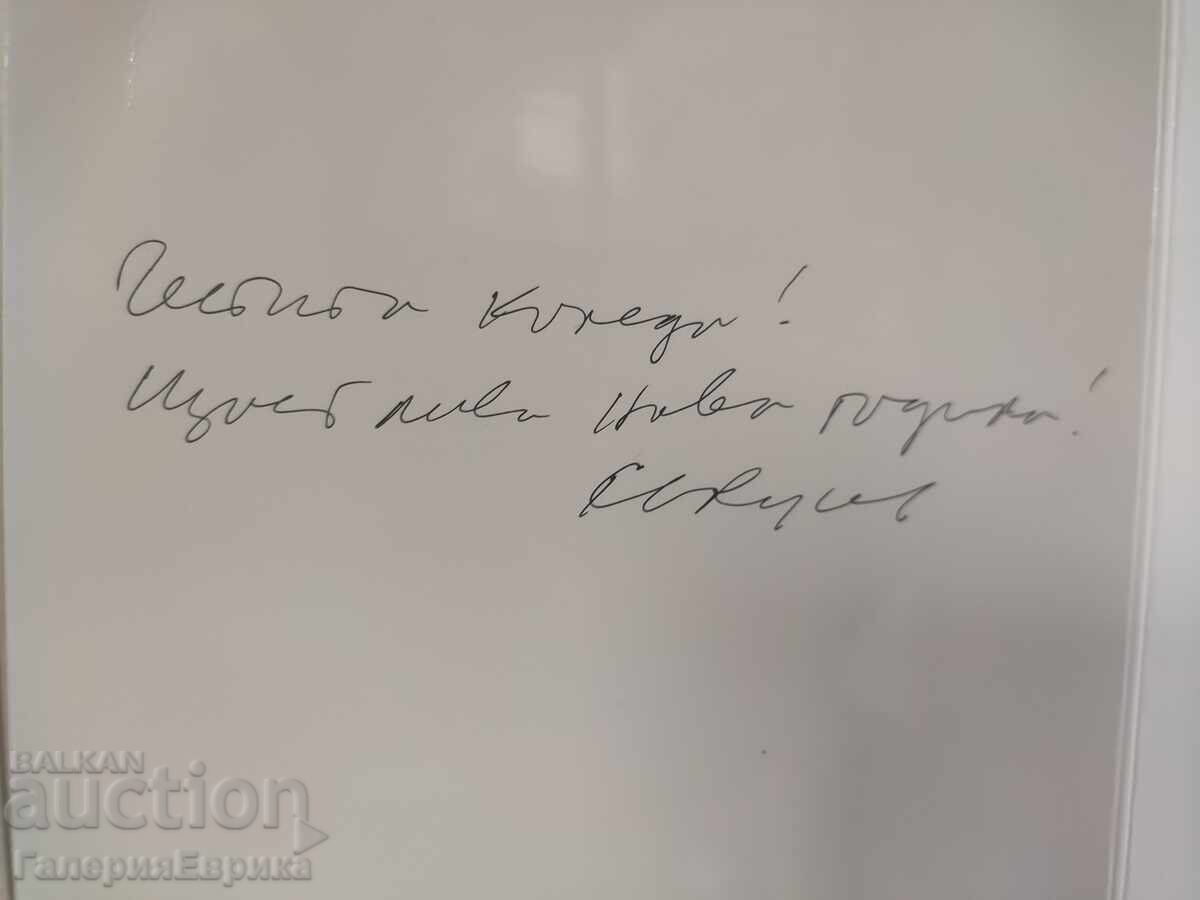 Честита Коледа!
Щастлива Нова година!
BALKAN
auction
ГалерияЕврика